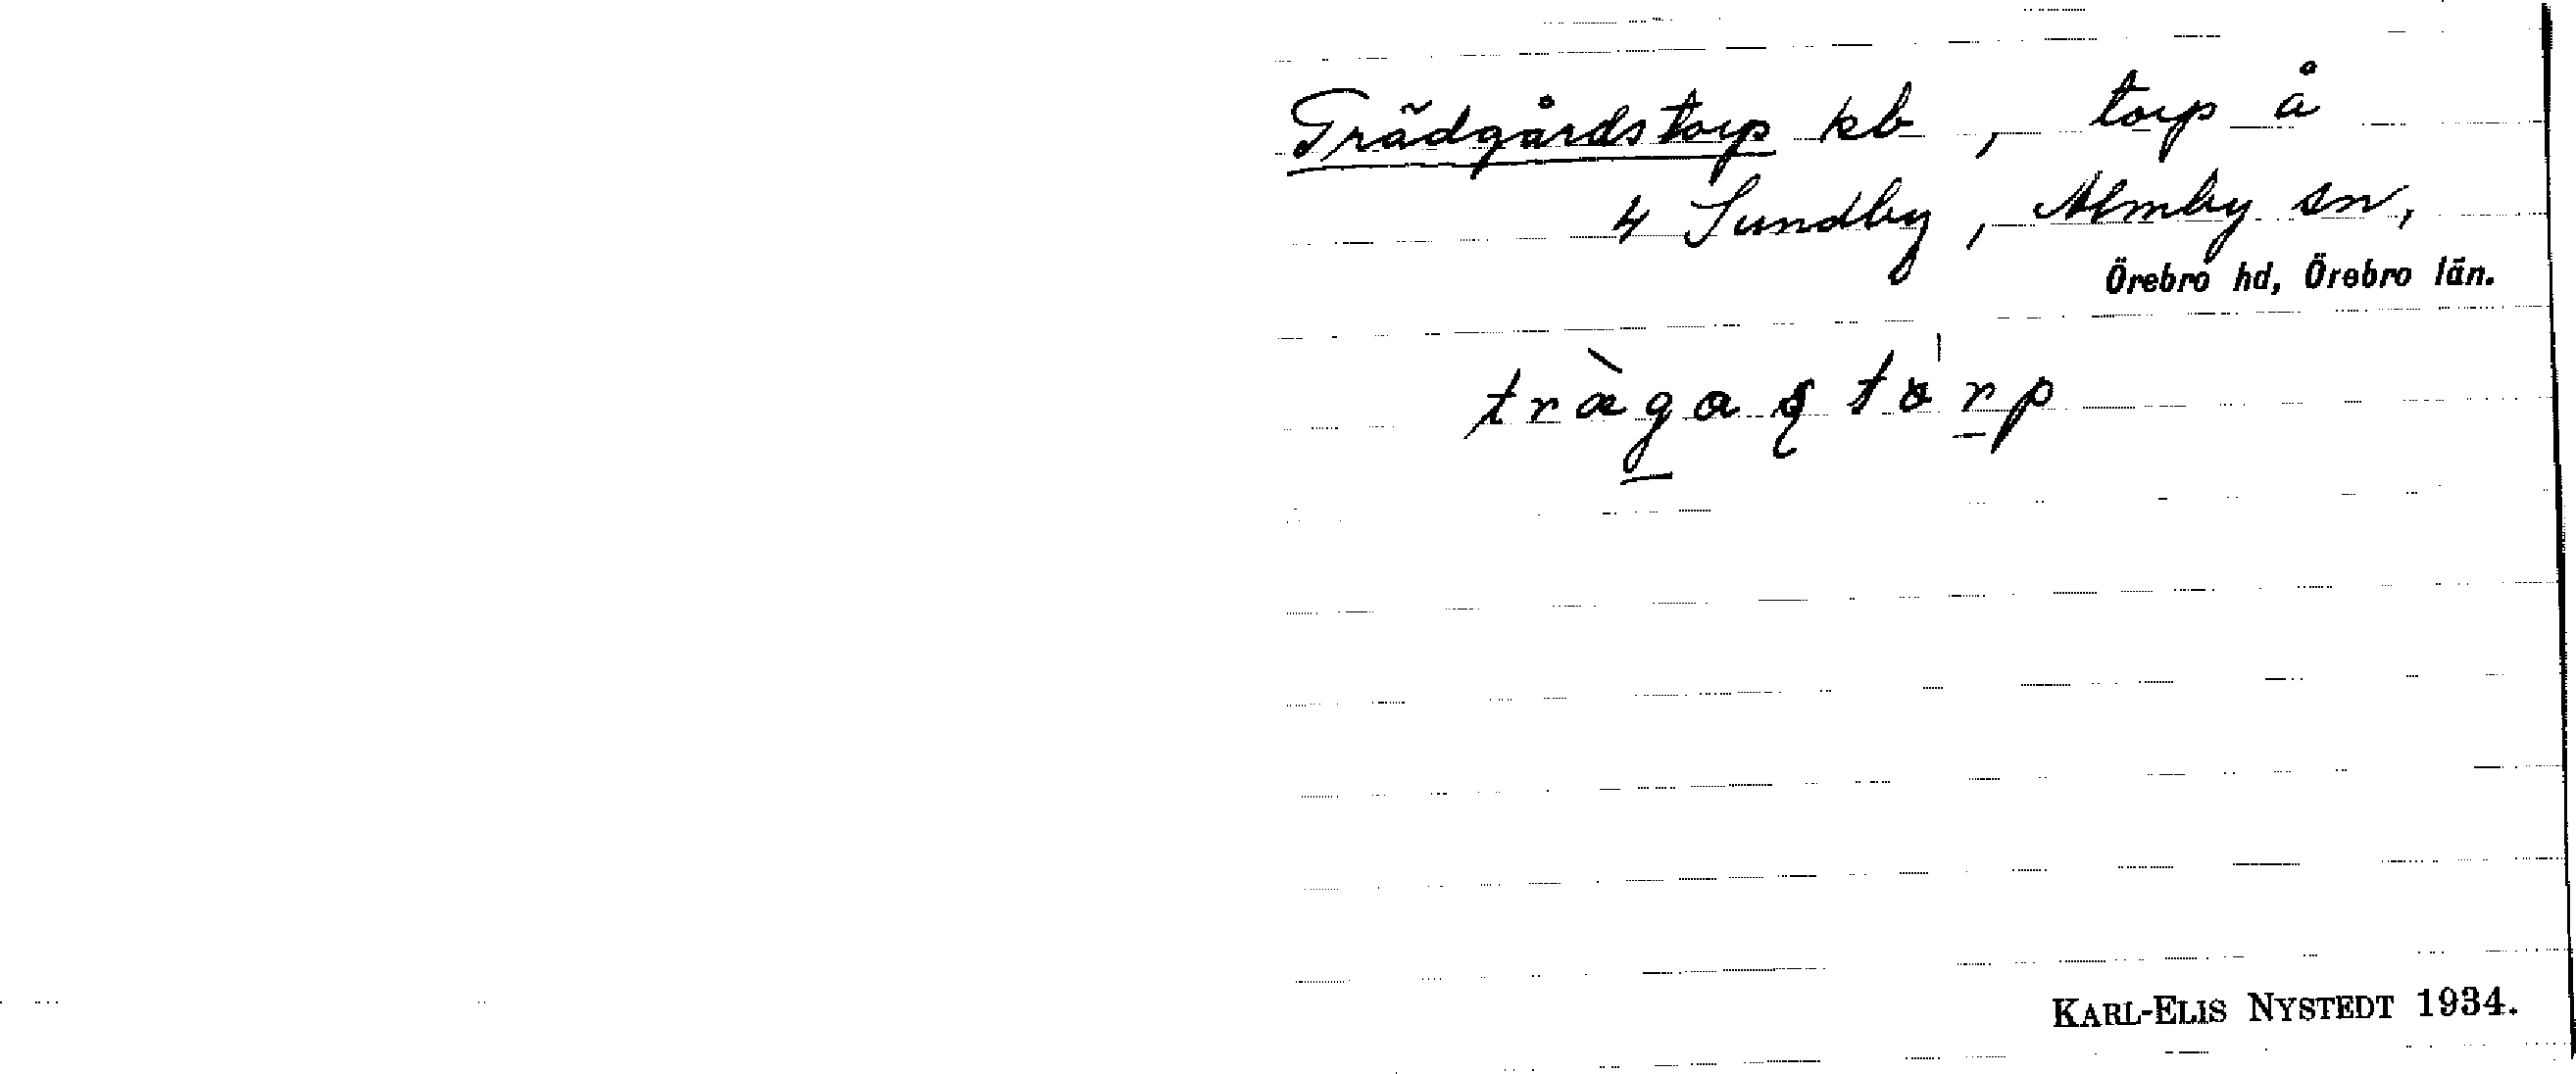 Trädgårdstorp kb, torp å
4 Sundby, Almby sn,
Örebro hd, Örebro län.
trægaştɔrp
KARL-ELIS NYSTEDT 1934.